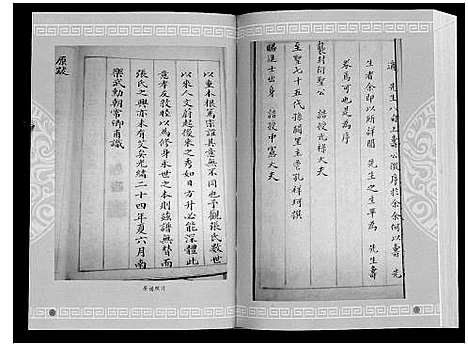 適　先生
公徵序於余余何以壽　先
生者余即以所詳聞　先生之生平為　先生壽
焉可也是為序
襲封衍聖公　誥授光祿大夫
至聖七十五代孫闕里主鬯孔祥珂撰
賜進士出身　誥授中憲大夫
以重本根篤宗誼其意無不同也予觀張氏數世
以來人文蔚起後來之秀如日方升必能深體此
意孝友敦睦以為修身永世之本則茲譜無替而
張氏之興亦未有艾矣光緒二十四年夏六月南
樂武勳朝常卿甫識
原跋